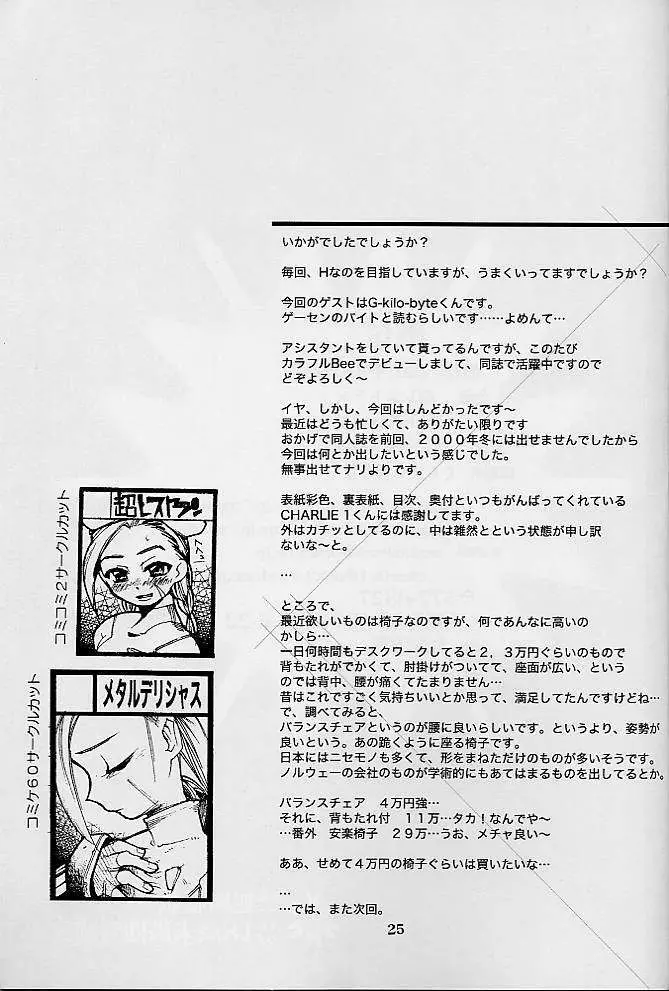 いかがでしたでしょうか？
毎回、Hなのを目指していますが、うまくいってますでしょうか？
今回のゲストはG-kilo-byteくんです。
ゲーセンのバイトと読むらしいです……よめんて…
アシスタントをしていて貰ってるんですが、このたび
カラフルBeeでデビューしまして、同誌で活躍中ですので
どぞよろしく〜
イヤ、しかし、今回はしんどかったです〜
最近はどうも忙しくて、ありがたい限りです
おかげで同人誌を前回、２０００年冬には出せませんでしたから
今回は何とか出したいという感じでした。
無事出せてナリよりです。
表紙彩色、裏表紙、目次、奥付といつもがんばってくれている
CHARLIE１くんには感謝してます。
外はカチッとしてるのに、中は雑然とという状態が申し訳
ないな〜と。
…
ところで、
最近欲しいものは椅子なのですが、何であんなに高いの
かしら…
一日何時間もデスクワークしてると２，３万円ぐらいのもので
背もたれがでかくて、肘掛けがついてて、座面が広い、という
のでは背中、腰が痛くてたまりません…
昔はこれですごく気持ちいいとか思って、満足してたんですけどね…
で、調べてみると、
バランスチェアというのが腰に良いらしいです。というより、姿勢が
良いという。あの跪くように座る椅子です。
日本にはニセモノも多くて、形をまねただけのものが多いそうです。
ノルウェーの会社のものが学術的にもあてはまるものを出してるとか。
バランスチェア　４万円強…
それに、背もたれ付　１１万…タカ！なんでや〜
…番外　安楽椅子　２９万…うお、メチャ良い〜
ああ、せめて４万円の椅子ぐらいは買いたいな…
…
…では、また次回。
コミコミ２サークルカット
超レストラン
コミケ６０サークルカット
メタルデリシャス
25